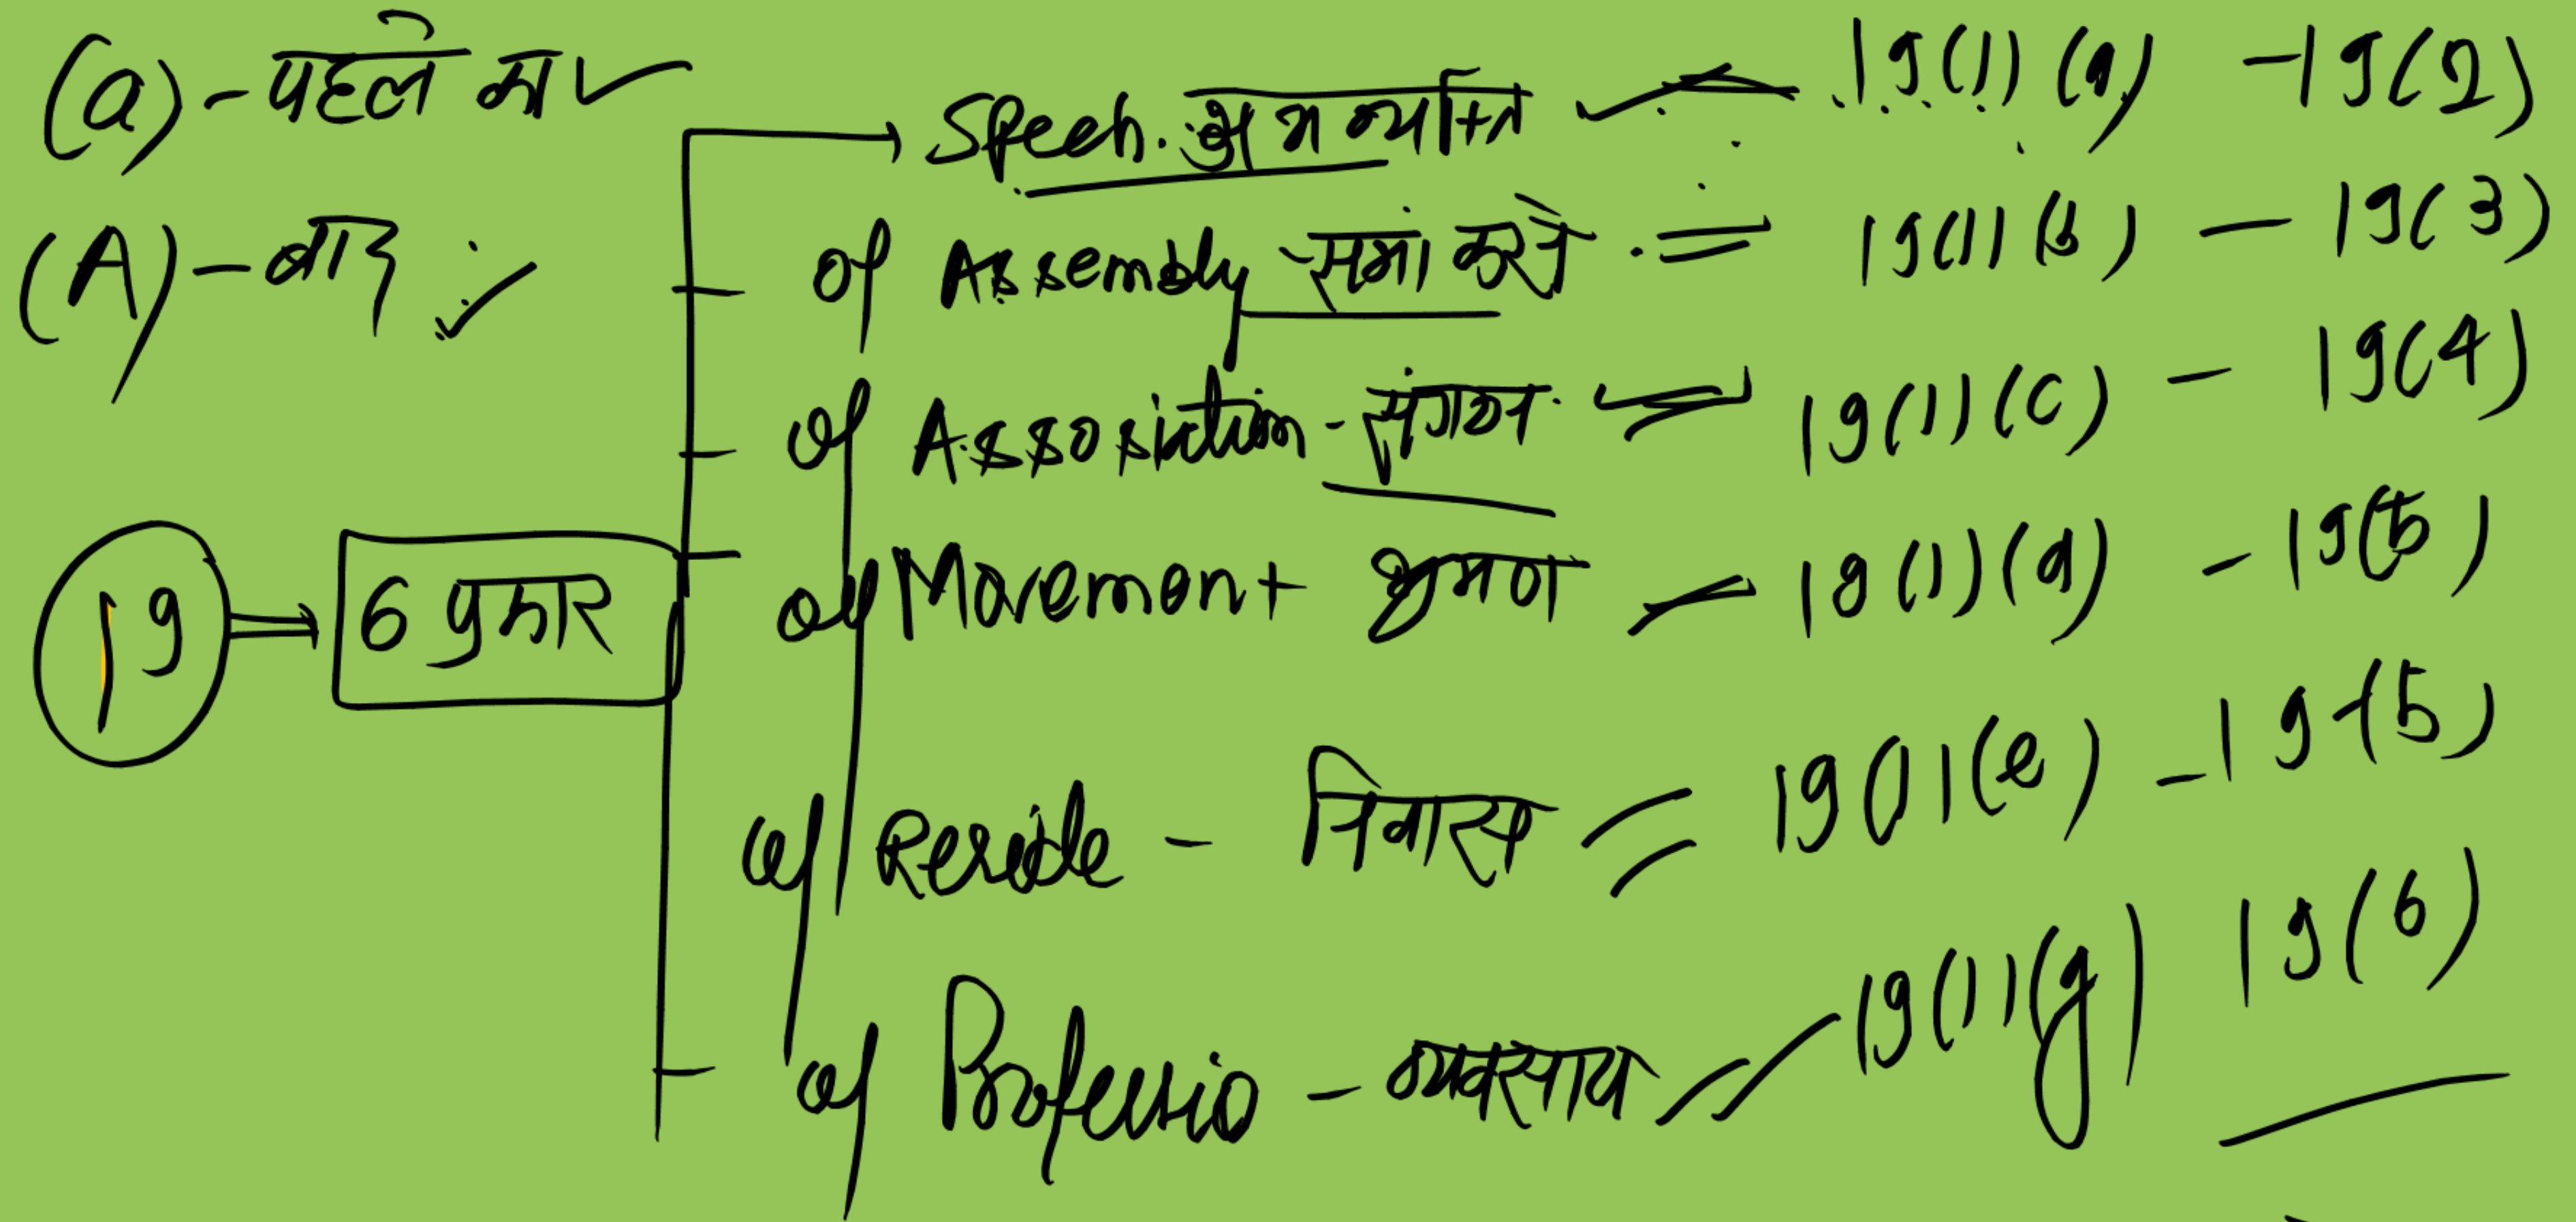 (a) - पहले का
(A) - बाद
19 ⇒ 6 प्रकार
Speech. अभिव्यक्ति 19(1)(a) - 19(2)
of Assembly - सभा करने 19(1)(b) - 19(3)
of Assosiation - संगठन 19(1)(c) - 19(4)
of Movement भ्रमण - 19(1)(d) - 19(5)
of Reside - निवास = 19()1(e) - 19(5)
of Professio - व्यवसाय 19(1)(g) 19(6)